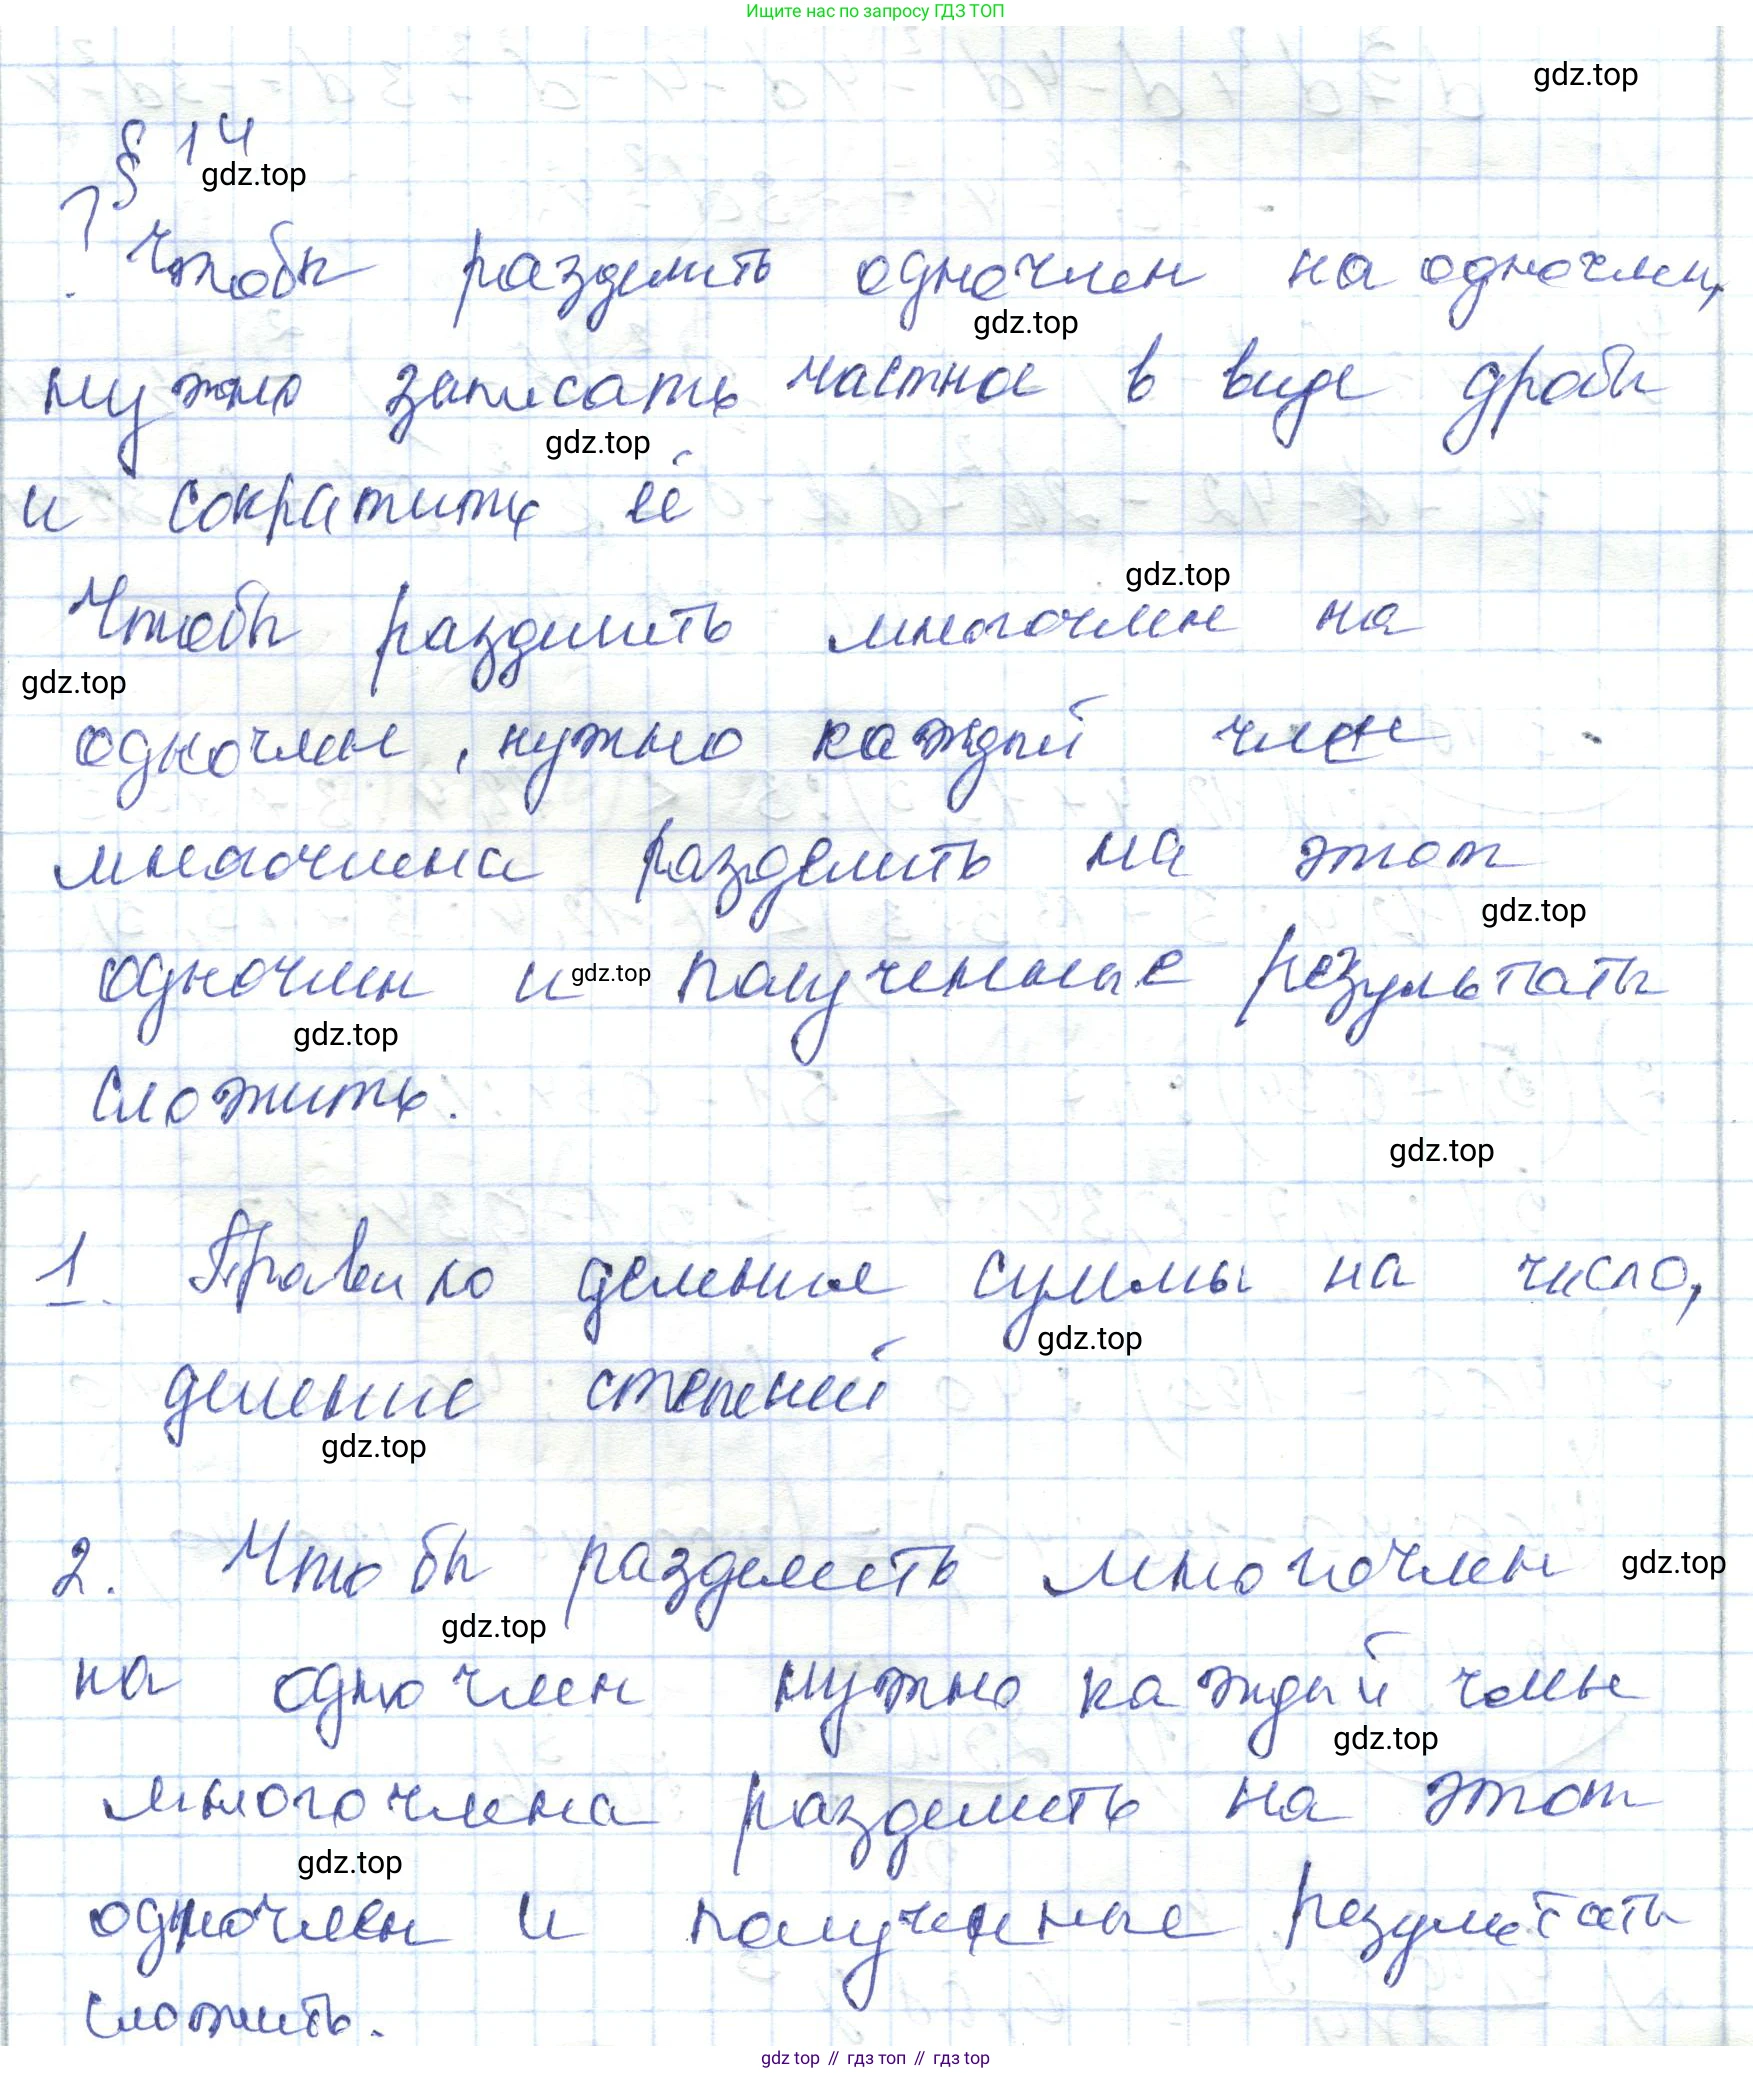 Ищите нас по запросу ГДЗ ТОП
gdz.top
§ 14
gdz.top
?
Чтобы разделить одночлен на одночлен,
gdz.top
нужно записать частное в виде дроби
gdz.top
и сократить её
gdz.top
Чтобы разделить многочлен на
gdz.top
одночлен, нужно каждый член
многочлена разделить на этот
gdz.top
одночлен и gdz.top полученные результаты
gdz.top
сложить.
gdz.top
1. Правило деления суммы на число,
gdz.top
деление степеней
gdz.top
2. Чтобы разделить многочлен gdz.top
gdz.top
на одночлен нужно каждый член
gdz.top
многочлена разделить на этот
gdz.top
одночлен и полученные результаты
сложить.
gdz top // гдз топ // гдз top